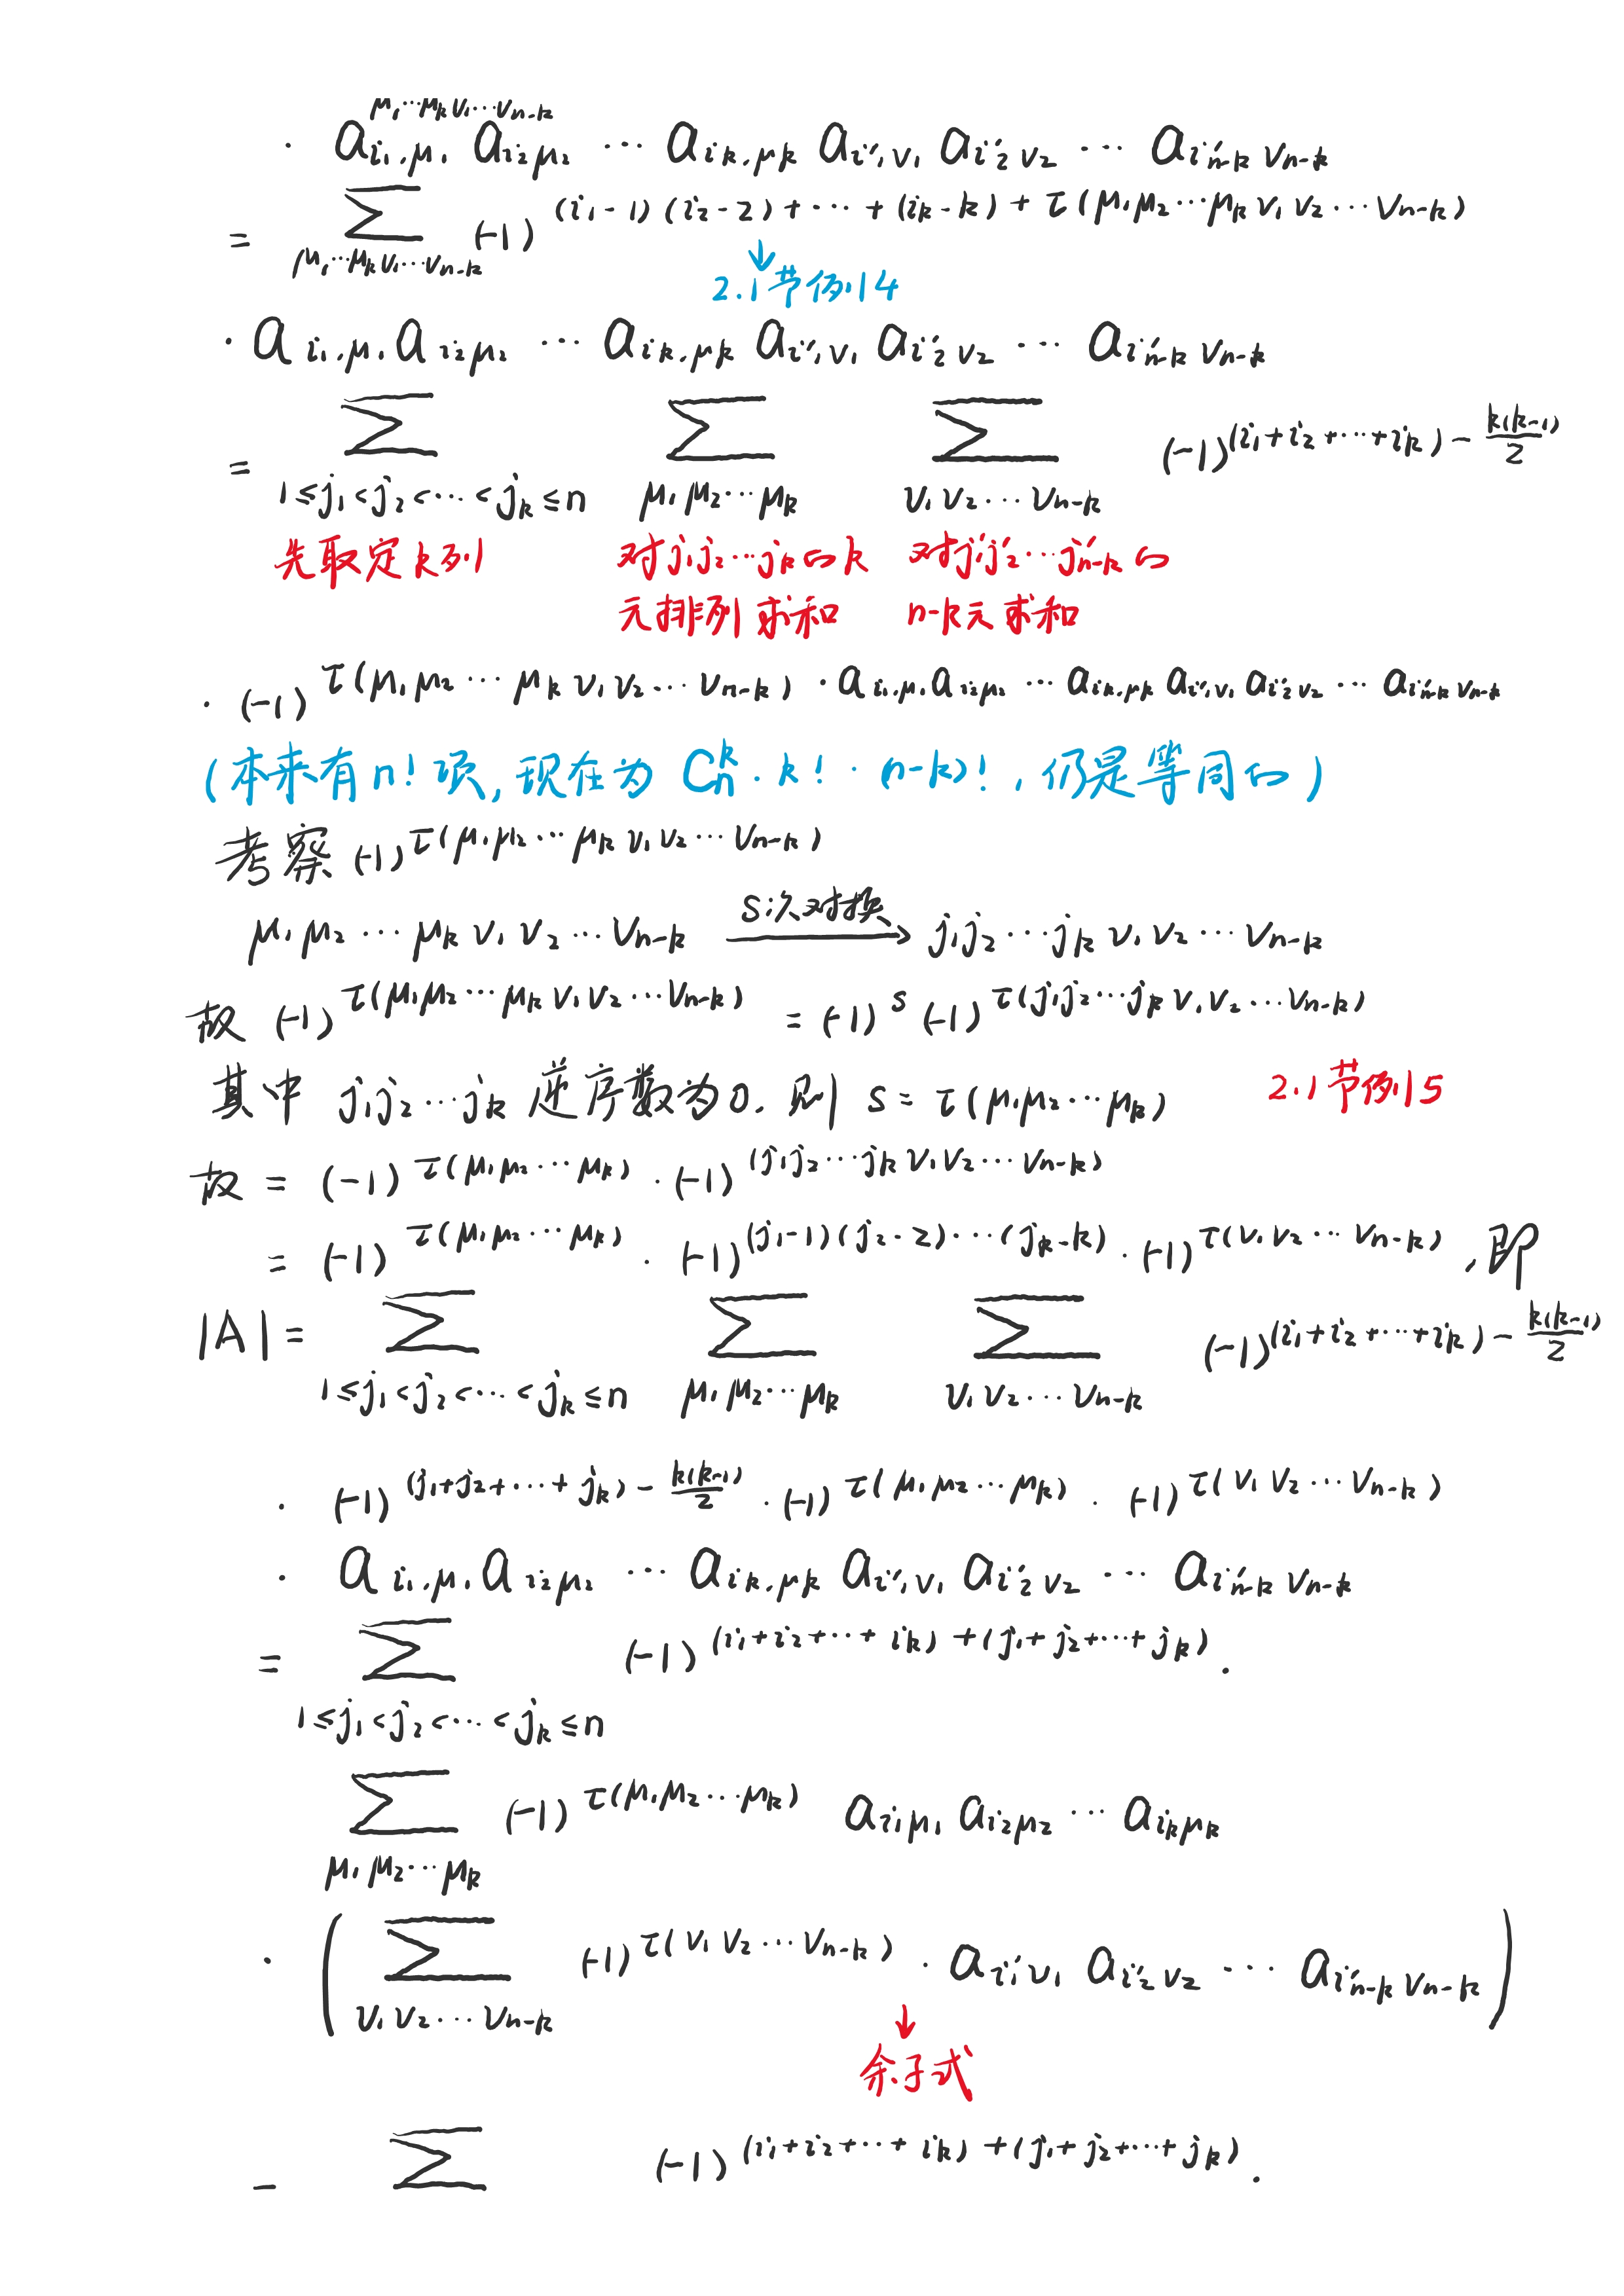 μ₁⋯μₖν₁⋯νₙ₋ₖ
· a_{i₁,μ₁} a_{i₂μ₂} ⋯ a_{iₖ,μₖ} a_{i′₁ν₁} a_{i′₂ν₂} ⋯ a_{i′ₙ₋ₖνₙ₋ₖ}
= ∑_{μ₁⋯μₖν₁⋯νₙ₋ₖ} (-1)^{(i₁-1)(i₂-2)+⋯+(iₖ-k)+τ(μ₁μ₂⋯μₖν₁ν₂⋯νₙ₋ₖ)}
↓
2.1节例14
· a_{i₁,μ₁} a_{i₂μ₂} ⋯ a_{iₖ,μₖ} a_{i′₁ν₁} a_{i′₂ν₂} ⋯ a_{i′ₙ₋ₖνₙ₋ₖ}
= ∑_{1≤j₁<j₂<⋯<jₖ≤n} ∑_{μ₁μ₂⋯μₖ} ∑_{ν₁ν₂⋯νₙ₋ₖ} (-1)^{(i₁+i₂+⋯+iₖ)-\frac{k(k-1)}{2}}
先取定k列 对j₁j₂⋯jₖの k 对j′₁j′₂⋯j′ₙ₋ₖの
元排列求和 n-k元求和
· (-1)^{τ(μ₁μ₂⋯μₖν₁ν₂⋯νₙ₋ₖ)} · a_{i₁,μ₁} a_{i₂μ₂} ⋯ a_{iₖ,μₖ} a_{i′₁ν₁} a_{i′₂ν₂} ⋯ a_{i′ₙ₋ₖνₙ₋ₖ}
(本来有n!项,现在为 C_n^k · k! · (n-k)!,仍是等同の)
考察 (-1)^{τ(μ₁μ₂⋯μₖν₁ν₂⋯νₙ₋ₖ)}
μ₁μ₂⋯μₖν₁ν₂⋯νₙ₋ₖ \xrightarrow{S次对换} j₁j₂⋯jₖν₁ν₂⋯νₙ₋ₖ
故 (-1)^{τ(μ₁μ₂⋯μₖν₁ν₂⋯νₙ₋ₖ)} = (-1)^S (-1)^{τ(j₁j₂⋯jₖν₁ν₂⋯νₙ₋ₖ)}
其中 j₁j₂⋯jₖ 逆序数为0. 则 S = τ(μ₁μ₂⋯μₖ) 2.1节例15
故 = (-1)^{τ(μ₁μ₂⋯μₖ)} · (-1)^{(j₁j₂⋯jₖν₁ν₂⋯νₙ₋ₖ)}
= (-1)^{τ(μ₁μ₂⋯μₖ)} · (-1)^{(j₁-1)(j₂-2)⋯(jₖ-k)} · (-1)^{τ(ν₁ν₂⋯νₙ₋ₖ)} ,即
|A| = ∑_{1≤j₁<j₂<⋯<jₖ≤n} ∑_{μ₁μ₂⋯μₖ} ∑_{ν₁ν₂⋯νₙ₋ₖ} (-1)^{(i₁+i₂+⋯+iₖ)-\frac{k(k-1)}{2}}
· (-1)^{(j₁+j₂+⋯+jₖ)-\frac{k(k-1)}{2}} · (-1)^{τ(μ₁μ₂⋯μₖ)} · (-1)^{τ(ν₁ν₂⋯νₙ₋ₖ)}
· a_{i₁,μ₁} a_{i₂μ₂} ⋯ a_{iₖ,μₖ} a_{i′₁ν₁} a_{i′₂ν₂} ⋯ a_{i′ₙ₋ₖνₙ₋ₖ}
= ∑_{1≤j₁<j₂<⋯<jₖ≤n} (-1)^{(i₁+i₂+⋯+iₖ)+(j₁+j₂+⋯+jₖ)} ·
∑_{μ₁μ₂⋯μₖ} (-1)^{τ(μ₁μ₂⋯μₖ)} a_{i₁μ₁} a_{i₂μ₂} ⋯ a_{iₖμₖ}
· ( ∑_{ν₁ν₂⋯νₙ₋ₖ} (-1)^{τ(ν₁ν₂⋯νₙ₋ₖ)} · a_{i′₁ν₁} a_{i′₂ν₂} ⋯ a_{i′ₙ₋ₖνₙ₋ₖ} )
↓
余子式
– ∑ (-1)^{(i₁+i₂+⋯+iₖ)+(j₁+j₂+⋯+jₖ)} ·